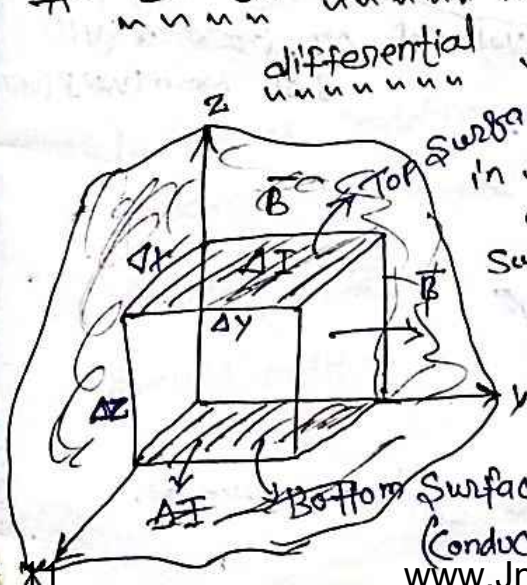 differential
Z
Top Surfa
in
B̅
ΔX
ΔI
Su
B̅
ΔY
ΔZ
Y
ΔI
Bottom Surfac
(Conduc
X
www.Jn